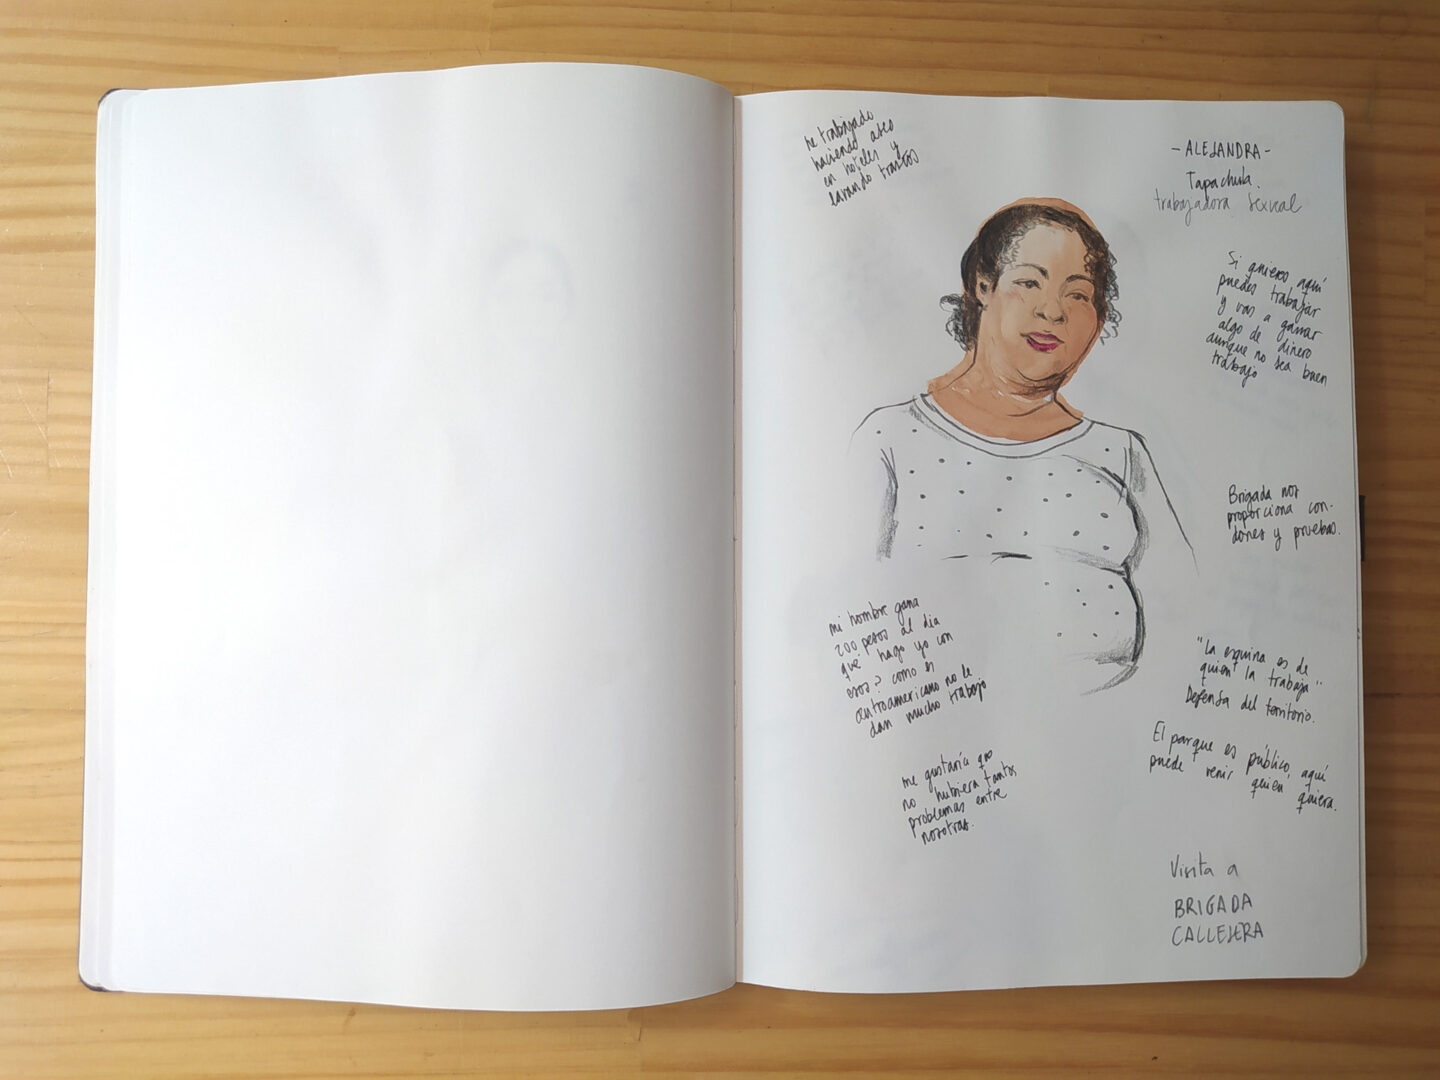 he trabajado
haciendo aseo
en hoteles y
lavando trastos
- ALEJANDRA -
Tapachula.
trabajadora sexual
Si quieres, aquí
puedes trabajar
y vas a ganar
algo de dinero
aunque no sea buen
trabajo
Brigada nos
proporciona con-
dones y pruebas.
mi hombre gana
200 pesos al dia
qué hago yo con
esos? como es
centroamericano no le
dan mucho trabajo
"La esquina es de
quien la trabaja"
Defensa del territorio.
El parque es público, aquí
puede venir quien quiera.
me gustaría que
no hubiera tantos
problemas entre
nosotras.
Visita a
BRIGADA
CALLEJERA